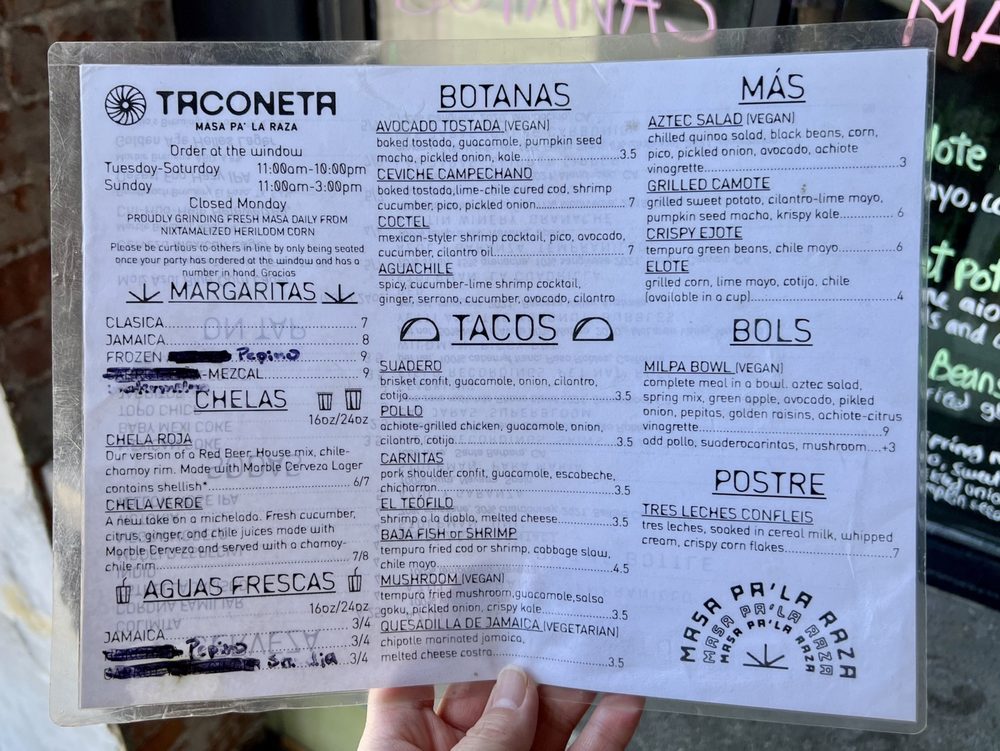 TACONETA
MASA PA' LA RAZA
Order at the window
Tuesday-Saturday 11:00am-10:00pm
Sunday 11:00am-3:00pm
Closed Monday
PROUDLY GRINDING FRESH MASA DAILY FROM
NIXTAMALIZED HERILOOM CORN
Please be curtious to others in line by only being seated
once your party has ordered at the window and has a
number in hand. Gracias
MARGARITAS
CLASICA 7
JAMAICA 8
FROZEN Pepino 9
-MEZCAL 9
watermelon
CHELAS
16oz/24oz
CHELA ROJA
Our version of a Red Beer House mix, chile-
chamoy rim. Made with Marble Cerveza Lager
contains shellfish* 6/7
CHELA VERDE
A new take on a michelada. Fresh cucumber,
citrus, ginger, and chile juices made with
Marble Cerveza and served with a chamoy-
chile rim 7/8
AGUAS FRESCAS
16oz/24oz
JAMAICA 3/4
Pepino 3/4
San dia 3/4
BOTANAS
AVOCADO TOSTADA (VEGAN)
baked tostada, guacamole, pumpkin seed
macha, pickled onion, kale 3.5
CEVICHE CAMPECHANO
baked tostada,lime-chile cured cod, shrimp
cucumber, pico, pickled onion 7
COCTEL
mexican-styler shrimp cocktail, pico, avocado,
cucumber, cilantro oil 7
AGUACHILE
spicy, cucumber-lime shrimp cocktail,
ginger, serrano, cucumber, avocado, cilantro
TACOS
SUADERO
brisket confit, guacamole, onion, cilantro,
cotija 3.5
POLLO
achiote-grilled chicken, guacamole, onion,
cilantro, cotija 3.5
CARNITAS
pork shoulder confit, guacamole, escabeche,
chicharron 3.5
EL TEÓFILO
shrimp a la diabla, melted cheese 3.5
BAJA FISH or SHRIMP
tempura fried cod or shrimp, cabbage slaw,
chile mayo 4.5
MUSHROOM (VEGAN)
tempura fried mushroom,guacamole,salsa
goku, pickled onion, crispy kale 3.5
QUESADILLA DE JAMAICA (VEGETARIAN)
chipotle marinated jamaica,
melted cheese costra 3.5
MÁS
AZTEC SALAD (VEGAN)
chilled quinoa salad, black beans, corn,
pico, pickled onion, avocado, achiote
vinagrette 3
GRILLED CAMOTE
grilled sweet potato, cilantro-lime mayo,
pumpkin seed macha, krispy kale 6
CRISPY EJOTE
tempura green beans, chile mayo 6
ELOTE
grilled corn, lime mayo, cotija, chile
(available in a cup) 4
BOLS
MILPA BOWL (VEGAN)
complete meal in a bowl. aztec salad,
spring mix, green apple, avocado, pikled
onion, pepitas, golden raisins, achiote-citrus
vinagrette 9
add pollo, suaderocarintas, mushroom....+3
POSTRE
TRES LECHES CONFLEIS
tres leches, soaked in cereal milk, whipped
cream, crispy corn flakes 7
MASA PA'LA RAZA
MASA PA'LA RAZA
MASA PA'LA RAZA